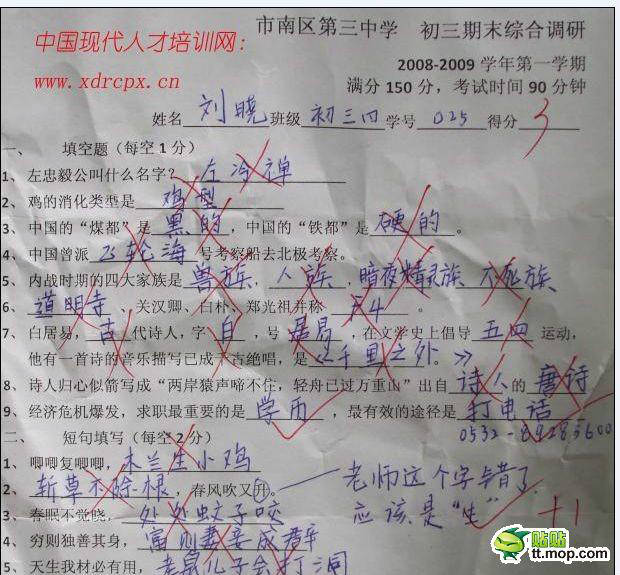 中国现代人才培训网：
www.xdrcpx.cn
市南区第三中学 初三期末综合调研
2008-2009 学年第一学期
满分 150 分，考试时间 90 分钟
姓名 刘晓 班级 初三四 学号 025 得分 3
一、 填空题（每空 1 分）
1、左忠毅公叫什么名字？ 左冷禅
2、鸡的消化类型是 鸡型
3、中国的“煤都”是 黑的 ，中国的“铁都”是 硬的 。
4、中国曾派 飞轮海 号考察船去北极考察。
5、内战时期的四大家族是 兽族，人族，暗夜精灵族 不死族
6、 道明寺 、关汉卿、白朴、郑光祖并称 F4 。
7、白居易， 古 代诗人，字 白 ，号 居易 ，在文学史上倡导 五四 运动，
他有一首诗的音乐描写已成千古绝唱，是 《千里之外。》
8、诗人归心似箭写成“两岸猿声啼不住，轻舟已过万重山”出自 诗人 的 唐诗
9、经济危机爆发，求职最重要的是 学历 ，最有效的途径是 打电话
0532-89285600
二、 短句填写（每空 2 分）
1、唧唧复唧唧， 木兰生小鸡
2、 斩草不除根 ，春风吹又升。 老师这个字错了
应该是“生” +1
3、春眠不觉晓， 处处蚊子咬
4、穷则独善其身， 富则妻妾成群
5、天生我材必有用， 老鼠儿子会打洞
贴贴
tt.mop.com